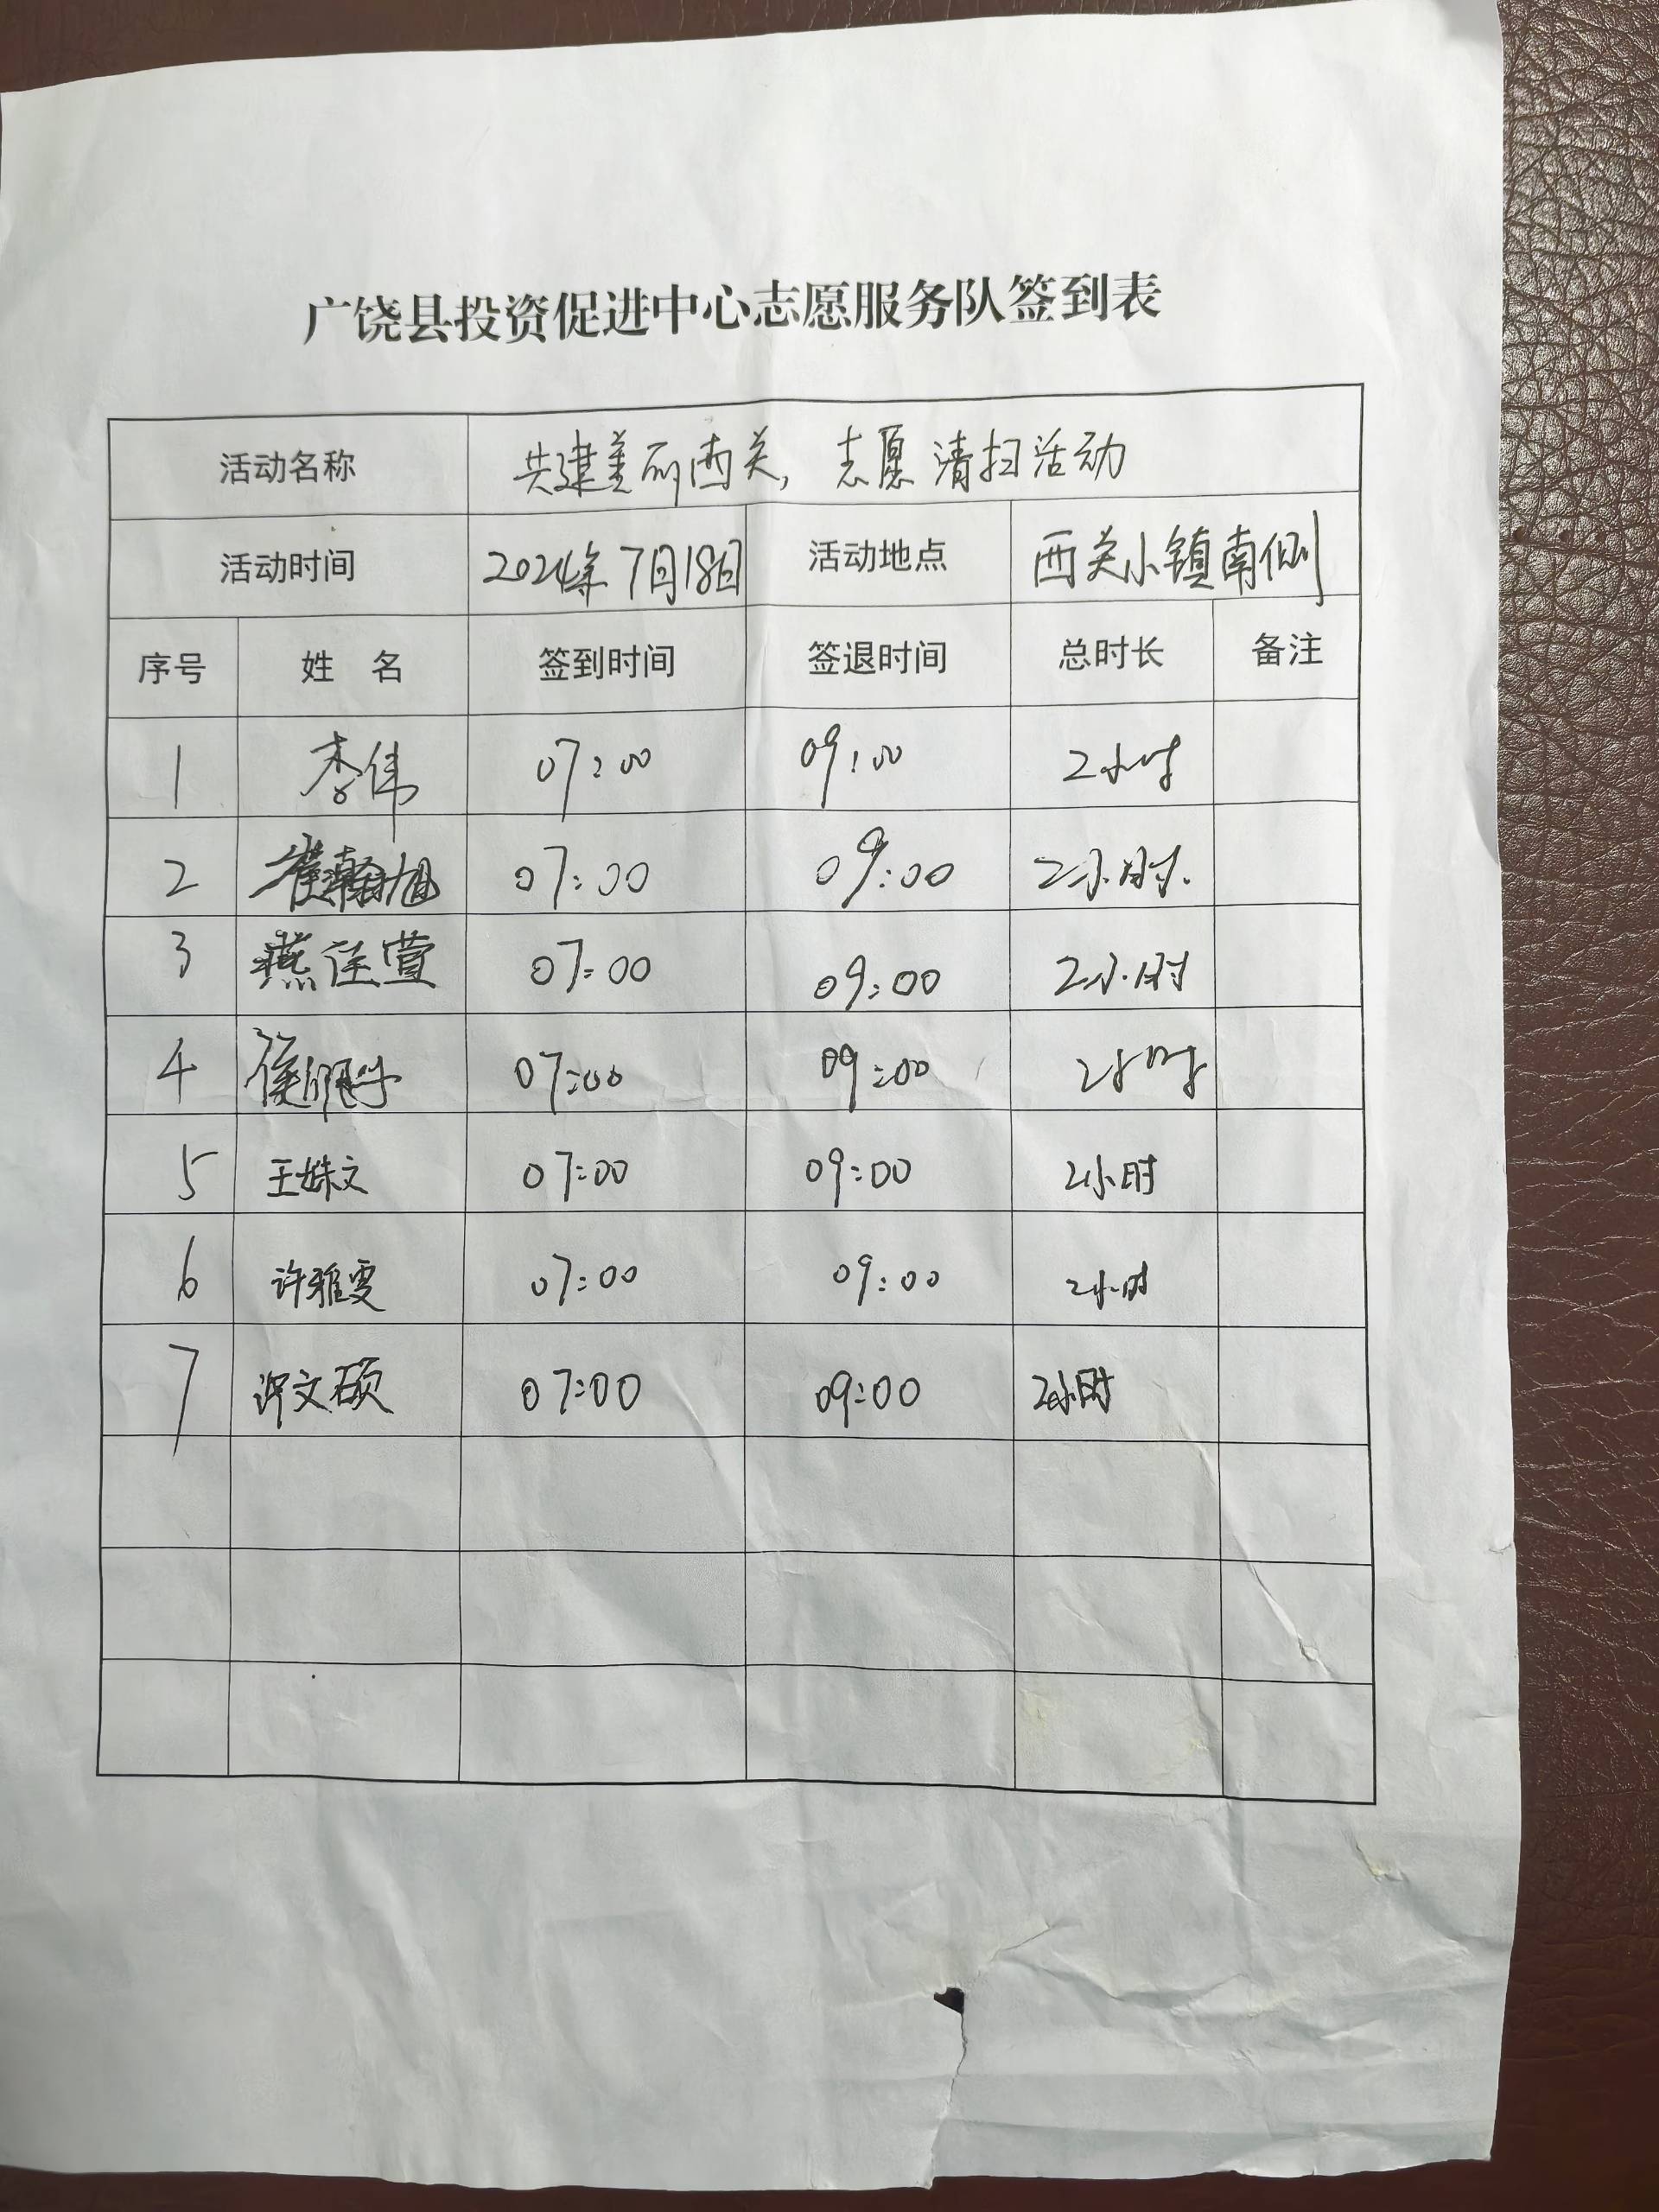 广饶县投资促进中心志愿服务队签到表
活动名称 共建美丽西关，志愿清扫活动
活动时间 2024年7月18日 活动地点 西关小镇南侧
序号 姓 名 签到时间 签退时间 总时长 备注
1 李伟 07:00 09:00 2小时
2 崔瀚旭 07:00 09:00 2小时.
3 燕佳萱 07:00 09:00 2小时
4 07:00 09:00 2小时
5 王姝文 07:00 09:00 2小时
6 许雅雯 07:00 09:00 2小时
7 文硕 07:00 09:00 2小时